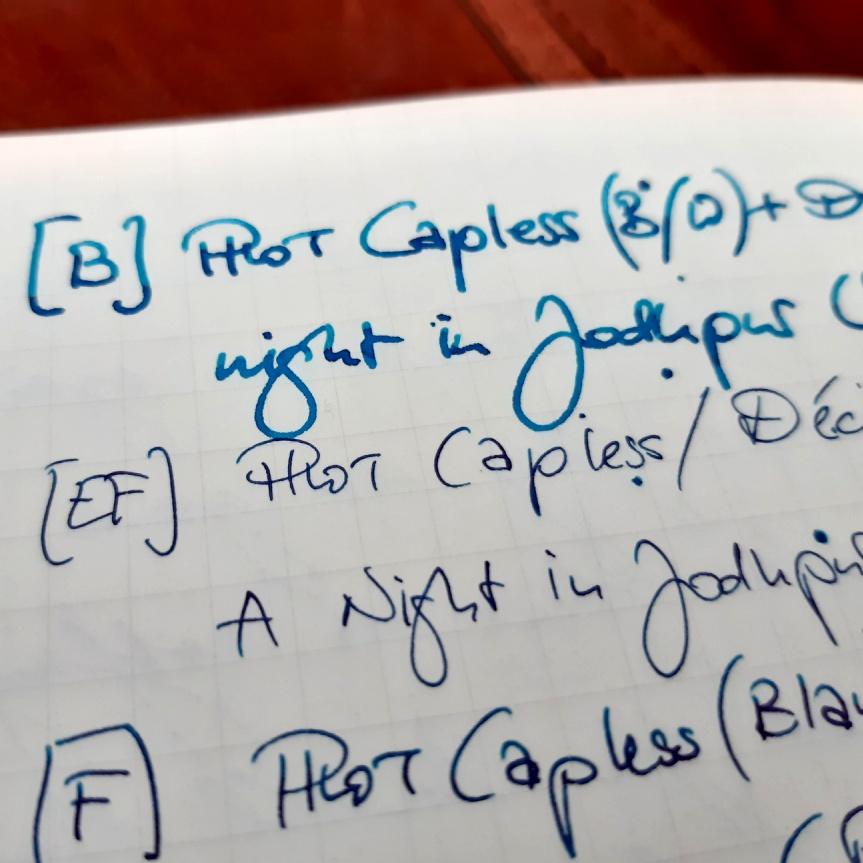 [B] PILOT Capless (B/D) + D
night in Jodhpur (
[EF] PILOT Capless / Déc
A Night in Jodhpur
[F] PILOT Capless (Bla